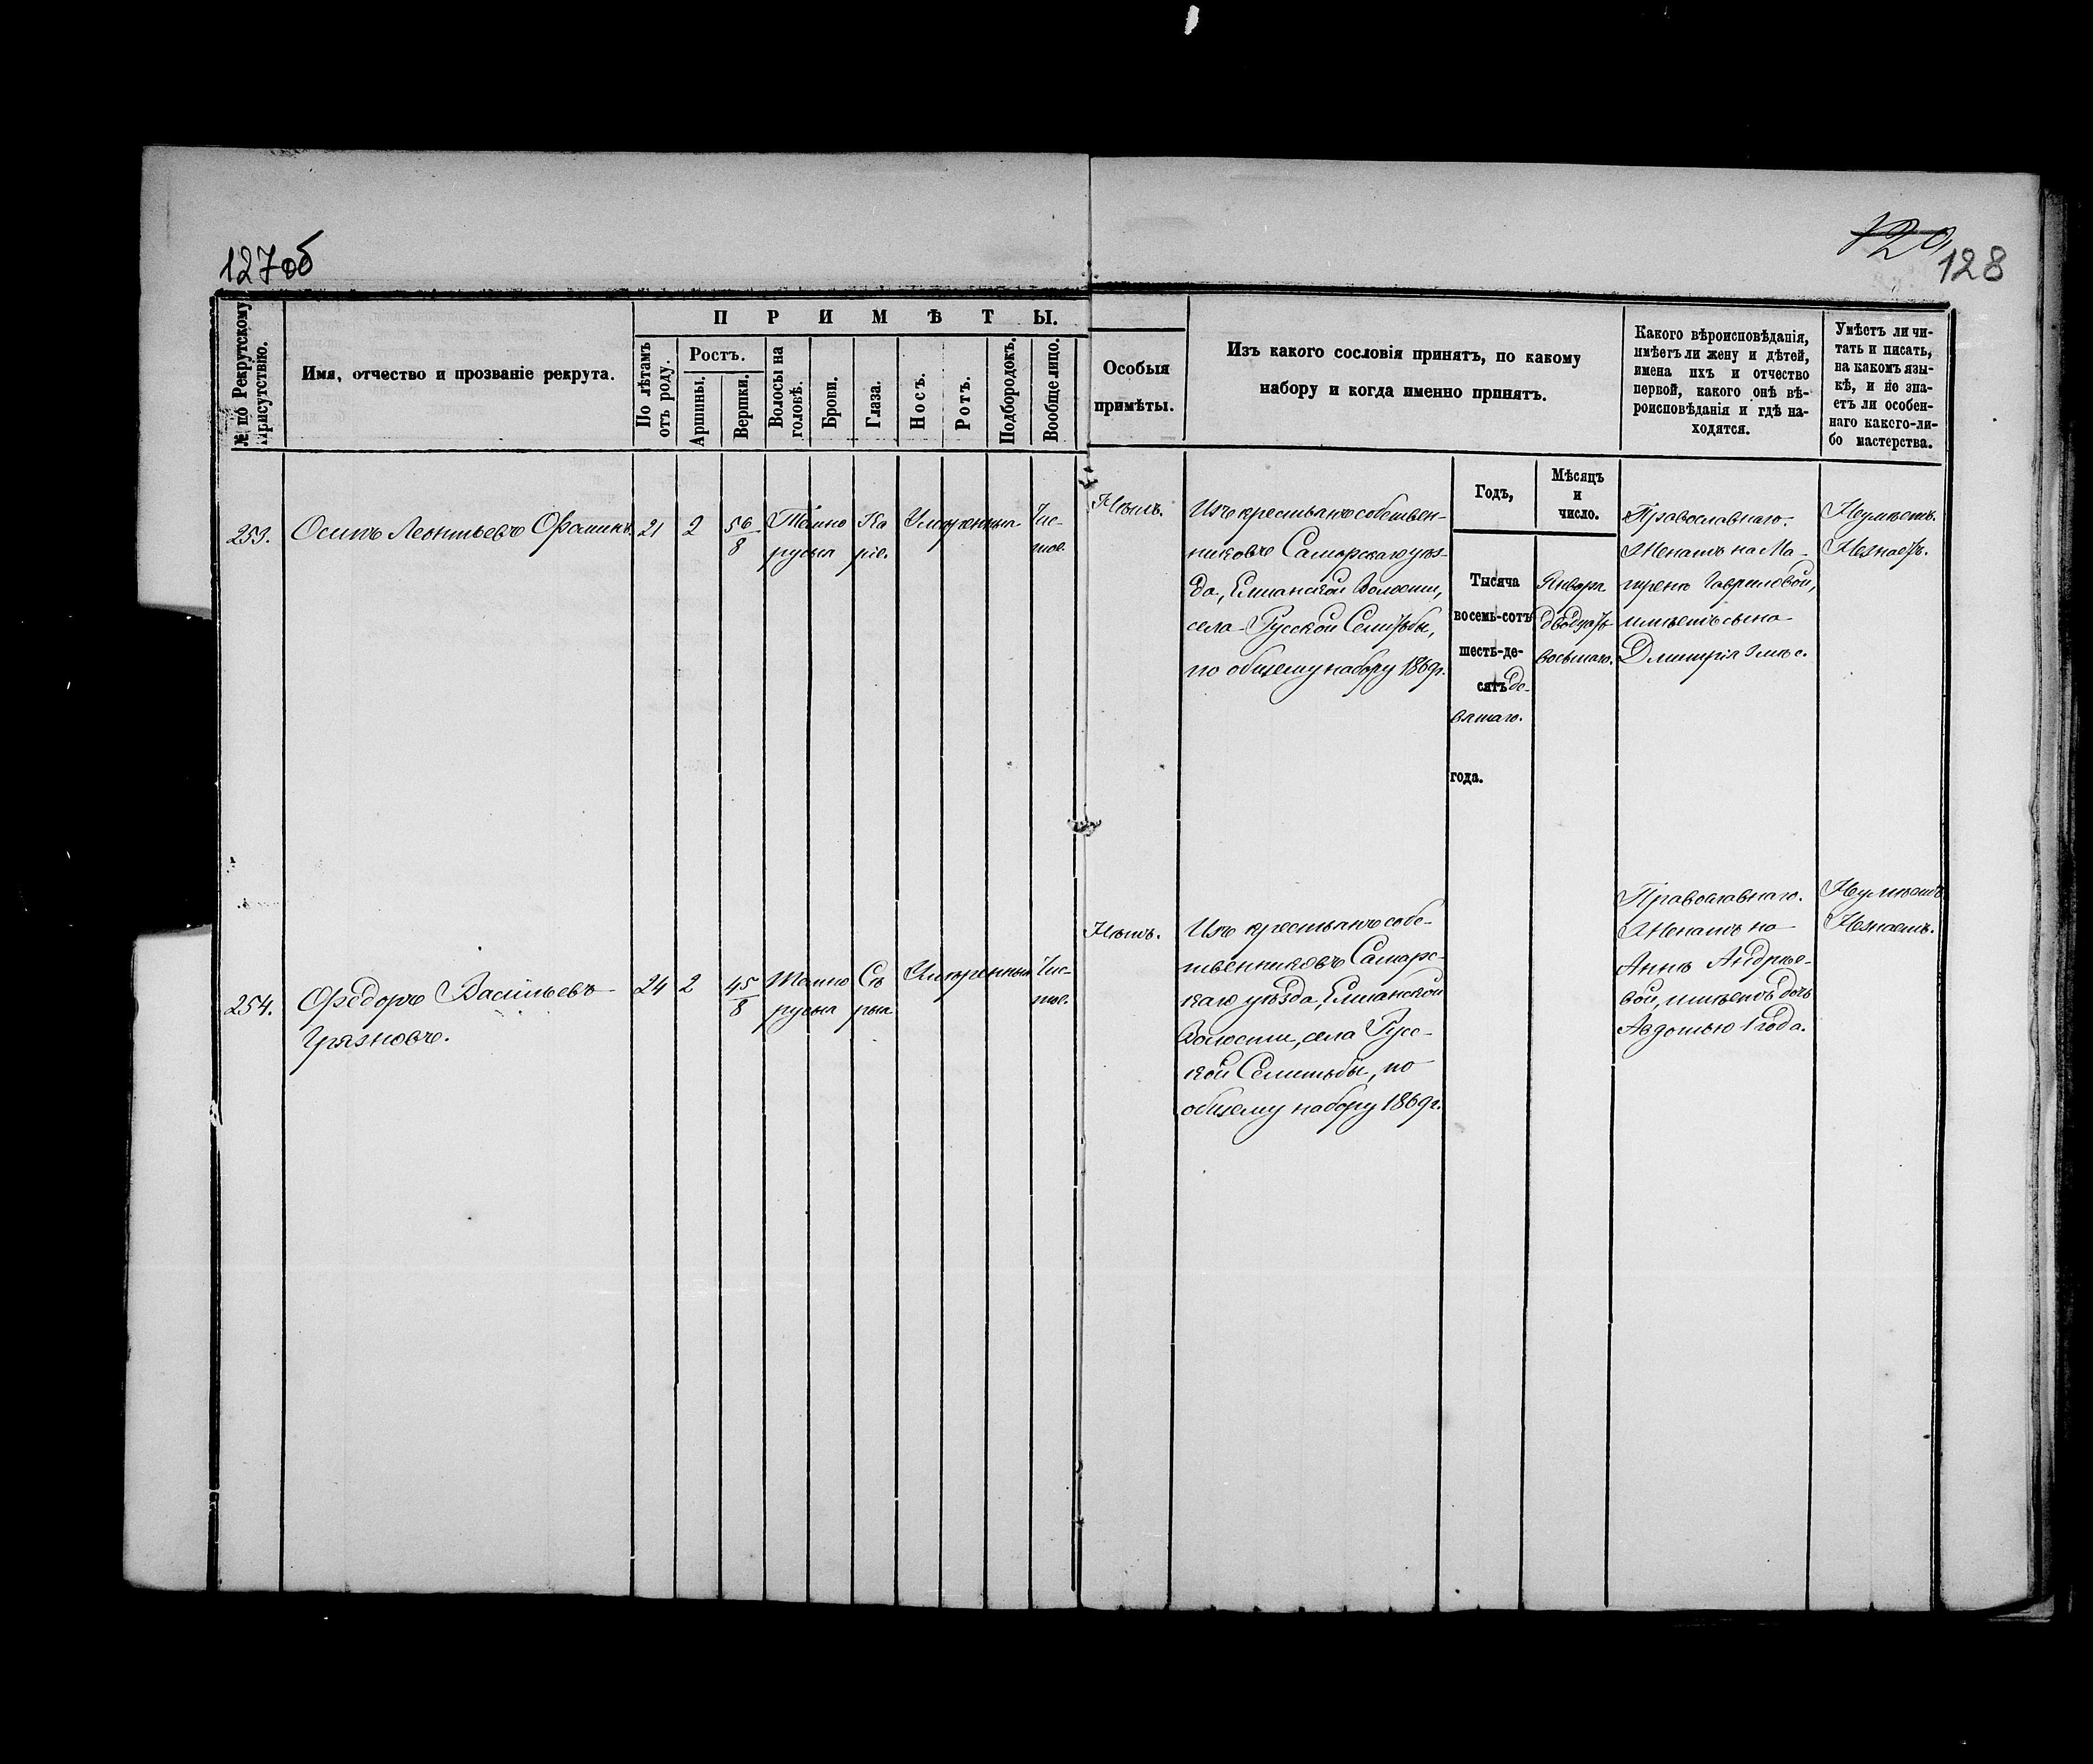 127об
120,
128
№ по Рекрутскому
Присутствію.
Имя, отчество и прозваніе рекрута.
ПРИМѢТЫ.
По лѣтамъ
отъ роду.
Ростъ.
Аршины.
Вершки.
Волосы на
головѣ.
Брови.
Глаза.
Носъ.
Ротъ.
Подбородокъ.
Вообще лицо.
Особыя
примѣты.
Изъ какого сословія принятъ, по какому
набору и когда именно принятъ.
Какого вѣроисповѣданія,
имѣетъ ли жену и дѣтей,
имена ихъ и отчество
первой, какого онѣ вѣ-
роисповѣданія и гдѣ на-
ходятся.
Умѣетъ ли чи-
тать и писать,
на какомъ язы-
кѣ, и не зна-
етъ ли особен-
наго какого-ли-
бо мастерства.
Годъ,
Мѣсяцъ
и
число.
253.
Осипъ Леонтьевъ Фоминъ.
21
2
5 6/8
Темно
русыя
Ка
ріе.
Умѣренныя
Чис-
тое.
Нѣтъ.
Изъ крестьянъ собствен-
никовъ Самарскаго уѣз-
да, Елшанской Волости,
села Русской Селитьбы,
по общему набору 1869г.
Тысяча
восемь-сотъ
шесть-де-
сятъ де-
вятаго.
года.
Января
двадцать
восьмаго.
Православнаго.
Женатъ на Ма-
тренѣ Гавриловой,
имѣетъ сына
Дмитрія
Неумѣетъ.
Незнаетъ.
254.
Федоръ Васильевъ
Грязновъ.
24
2
4 5/8
Темно
русыя
Сѣ
рыя
Умѣренныя
Чис-
тое.
Нѣтъ.
Изъ крестьянъ собс-
твенниковъ Самарс-
каго уѣзда, Елшанской
Волости, села Русс-
кой Селитьбы, по
общему набору 1869г.
Православнаго.
Женатъ на
Аннѣ Андрѣе-
вой, имѣетъ дочь
Авдотью 1 года.
Неумѣетъ
Незнаетъ.